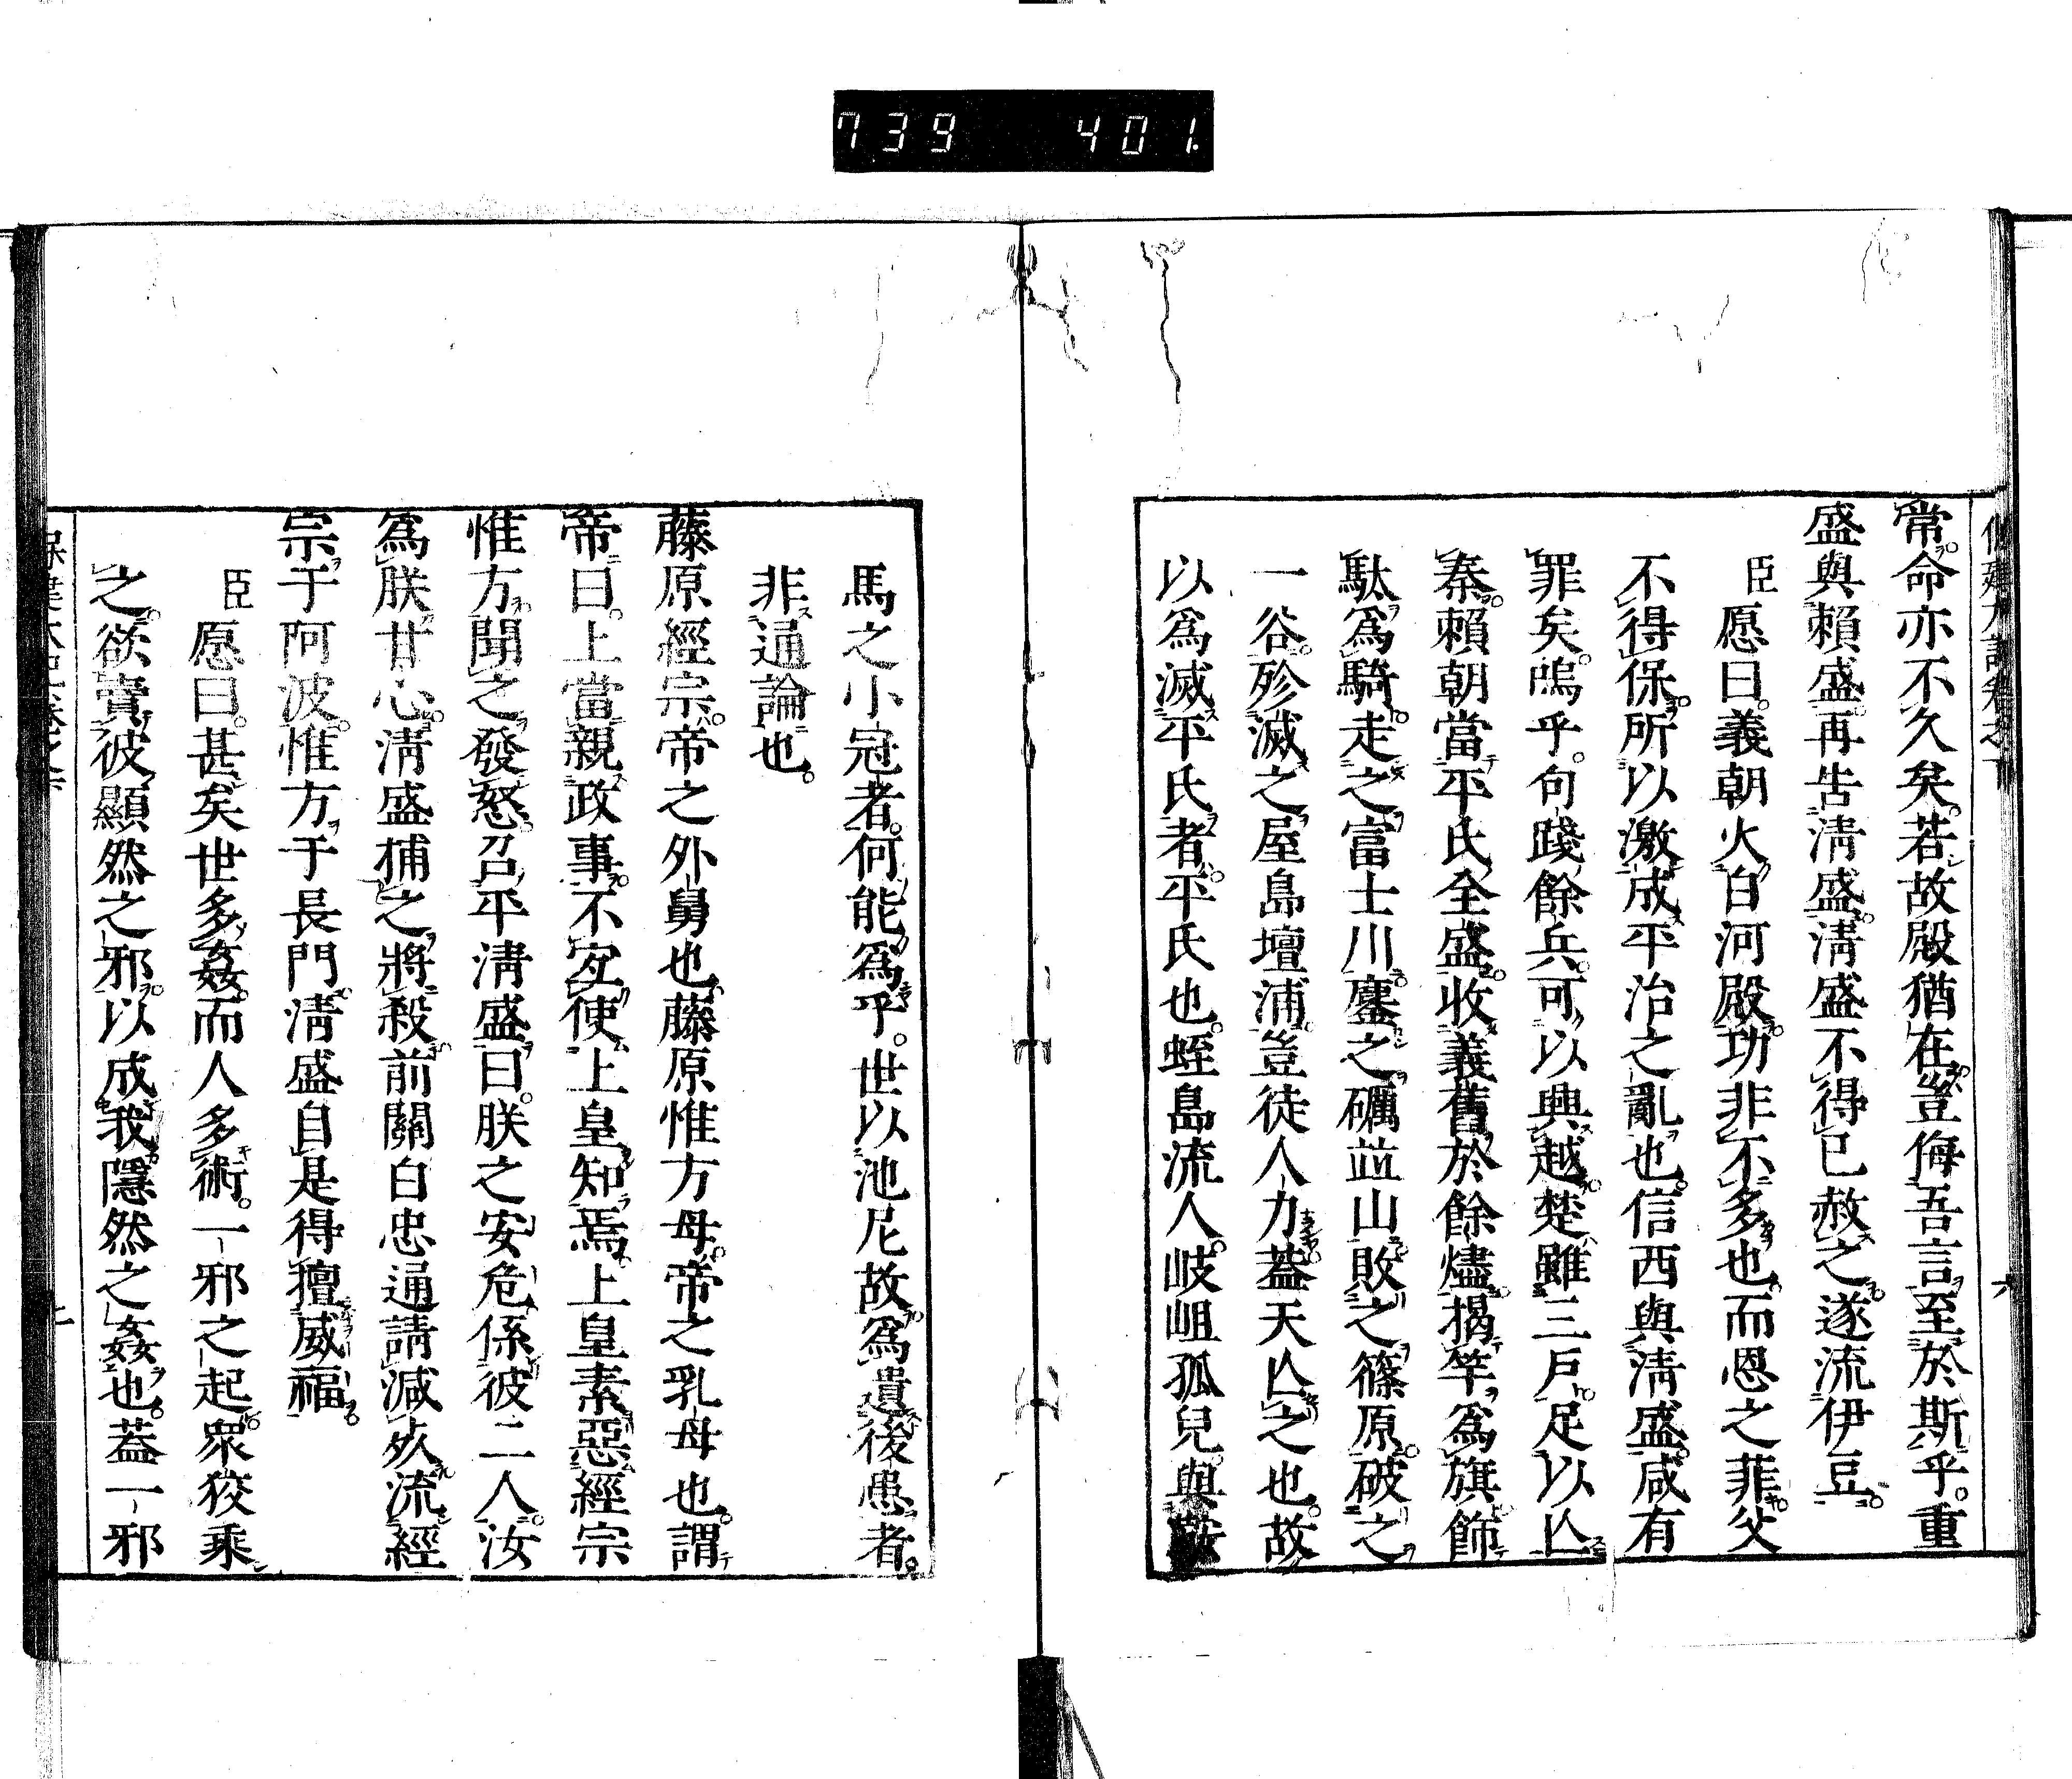 739 401.
常。命亦不久矣。若故殿猶在。豈侮吾言至於斯乎。重
盛與賴盛再告淸盛。淸盛不得已赦之。遂流伊豆。
臣愿曰。義朝火白河殿。功非不多也。而恩之菲。父
不得保。所以激成平治之亂也。信西與淸盛。咸有
罪矣。嗚乎。句踐餘兵。可以興越。楚雖三戶。足以亾
秦。賴朝當平氏全盛。收義舊於餘燼。揭竿爲旗。飾
駄爲騎。走之富士川。鏖之礪竝山。敗之篠原。破之
一谷。殄滅之屋島壇浦。豈徒人力。蓋天亾之也。故
以爲滅平氏者。平氏也。蛭島流人。岐岨孤兒。與鞍
馬之小冠者。何能爲乎。世以池尼故爲遺後患者。
非通論也。
藤原經宗。帝之外舅也。藤原惟方母。帝之乳母也。謂
帝曰。上當親政事。不宜使上皇知焉。上皇素惡經宗
惟方。聞之發怒。召平淸盛曰。朕之安危。係彼二人。汝
爲朕甘心。淸盛捕之。將殺。前關白忠通請減死。流經
宗于阿波。惟方于長門。淸盛自是得擅威福。
臣愿曰。甚矣世多姦。而人多術。一邪之起。衆狡乘
之。欲賣彼顯然之邪。以成我隱然之姦也。蓋一邪